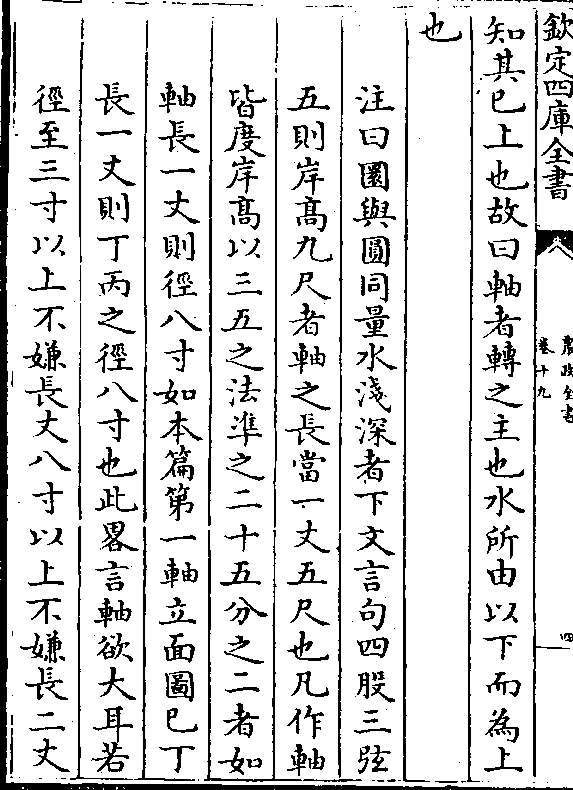 欽定四庫全書
農政全書
卷十九
四
知其已上也故曰軸者轉之主也水所由以下而為上
也
注曰圜與圓同量水淺深者下文言句四股三弦
五則岸髙九尺者軸之長當一丈五尺也凡作軸
皆度岸髙以三五之法凖之二十五分之二者如
軸長一丈則徑八寸如本篇第一軸立面圖已丁
長一丈則丁丙之徑八寸也此畧言軸欲大耳若
徑至三寸以上不嫌長丈八寸以上不嫌長二丈